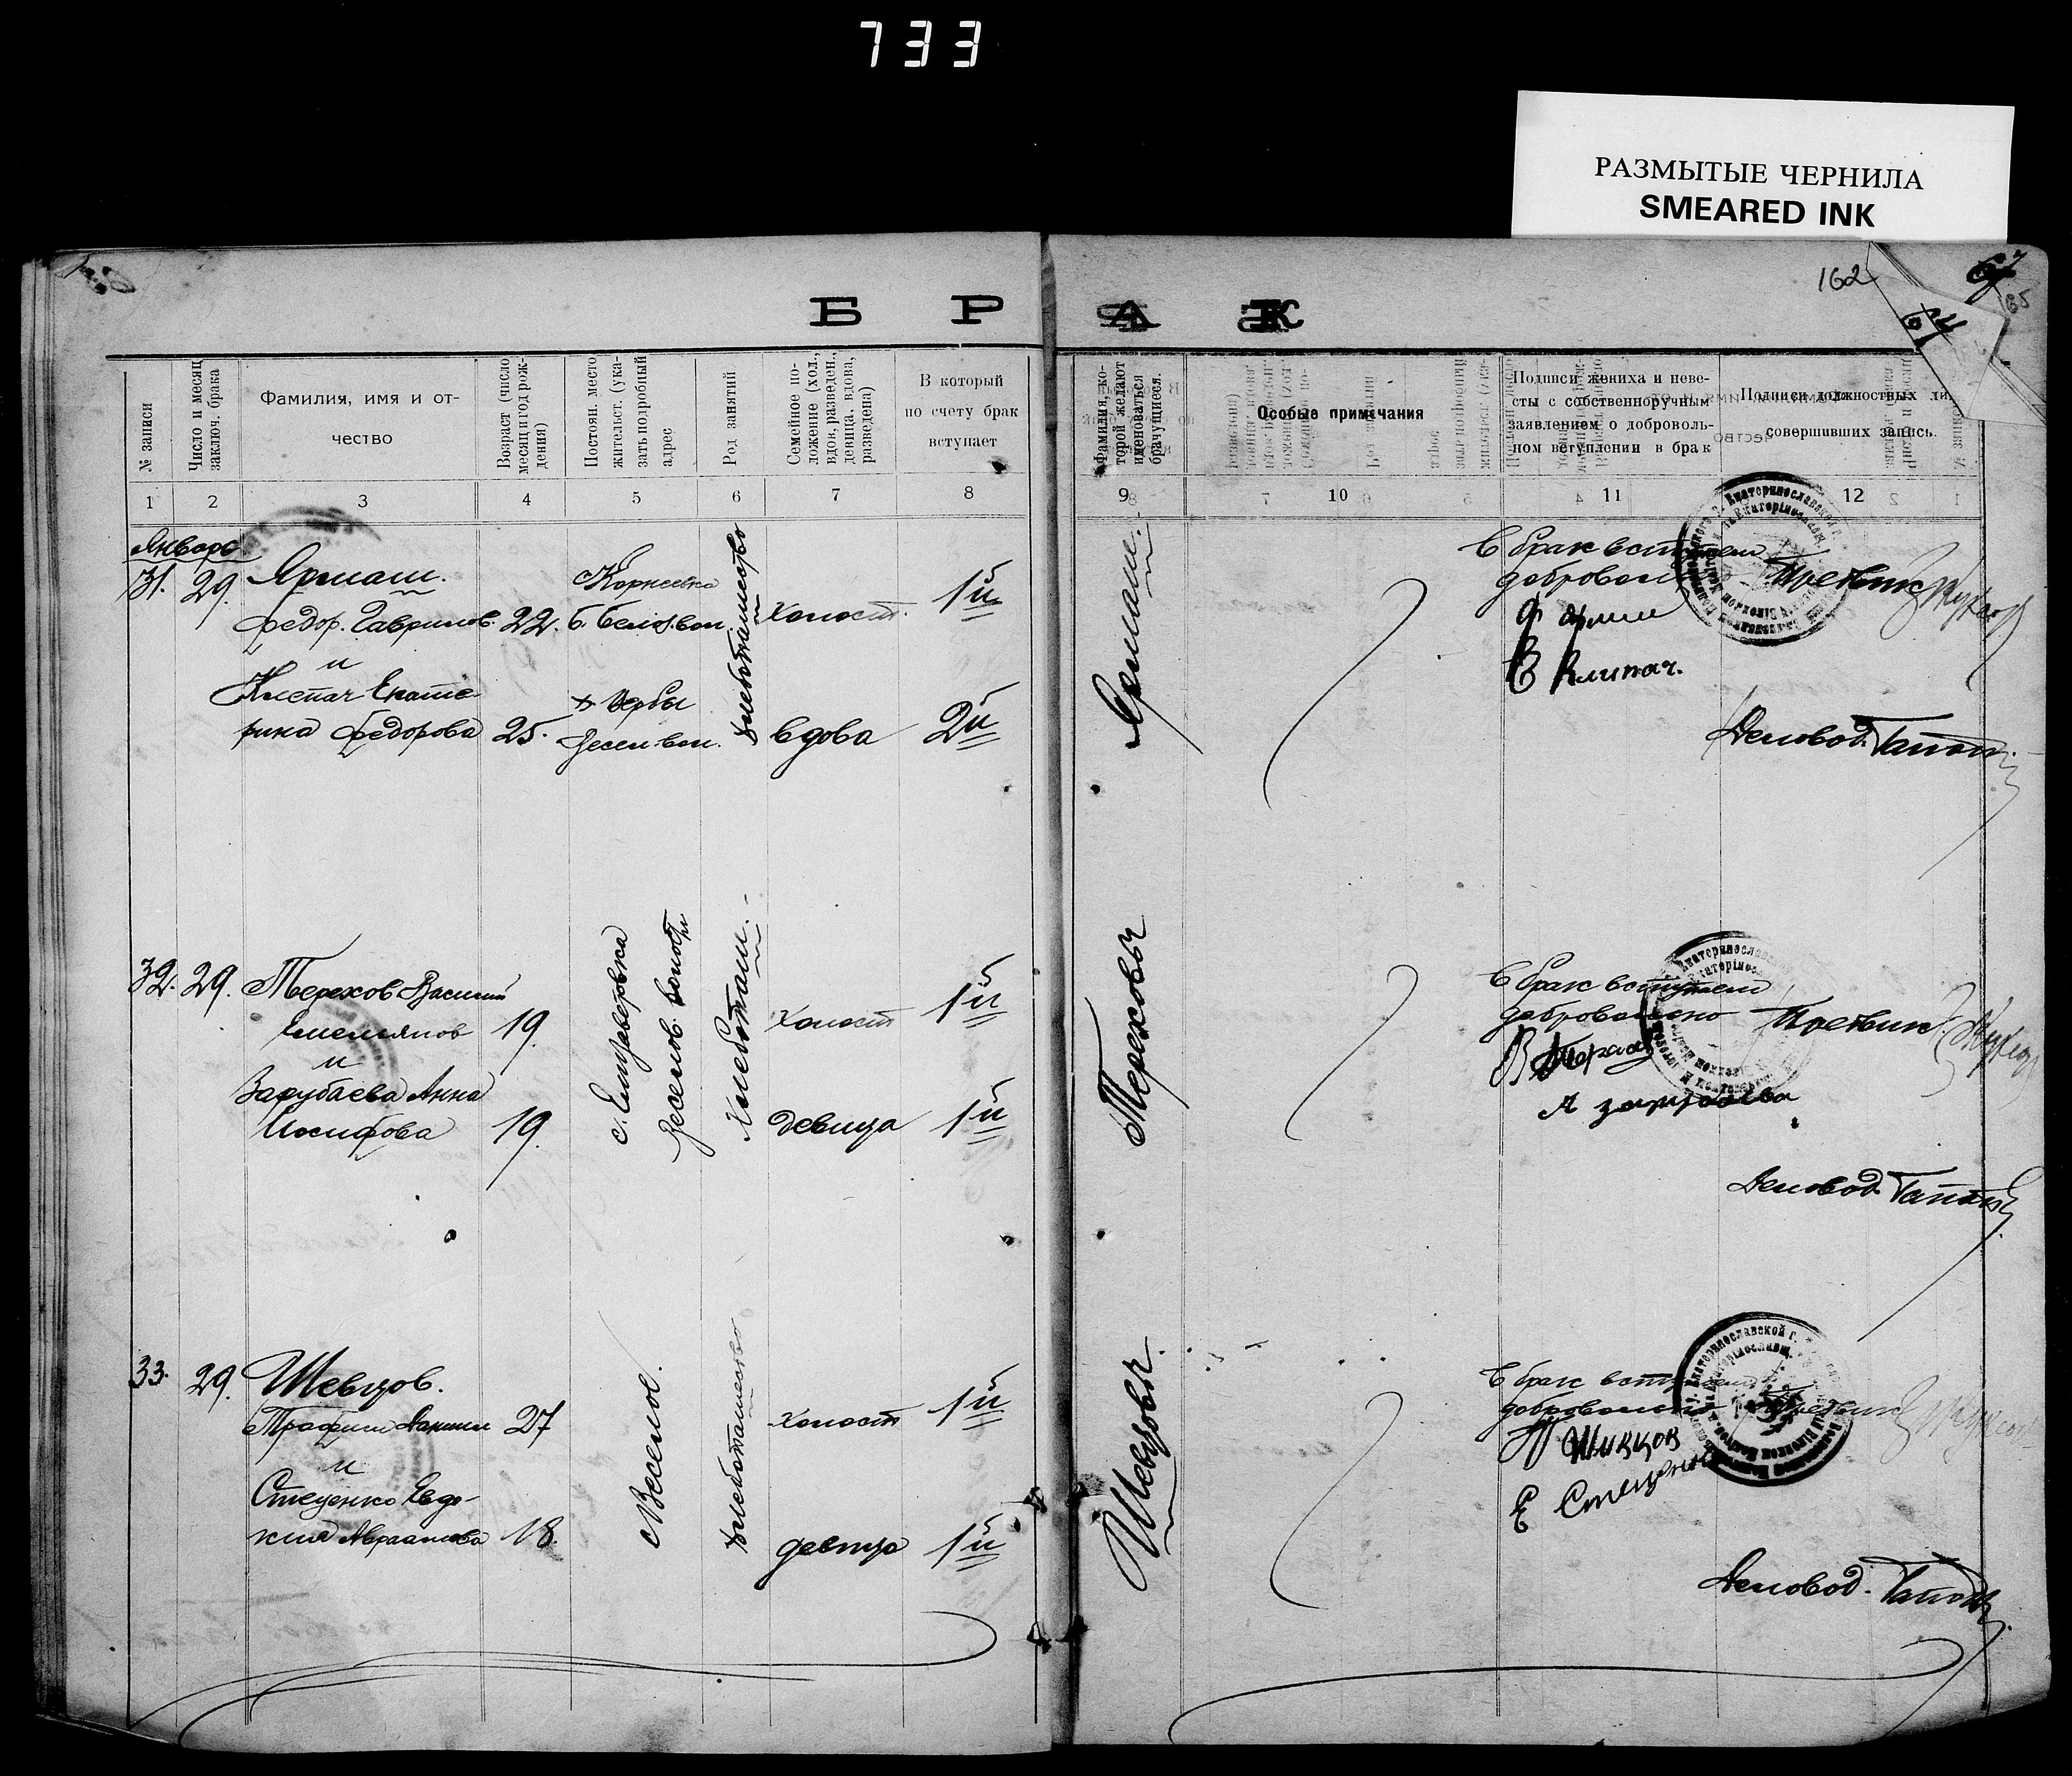 733
РАЗМЫТЫЕ ЧЕРНИЛА
SMEARED INK
162
Б Р А К
№ записи
Число и месяц заключ. брака
Фамилия, имя и отчество
Возраст (число месяц и год рождения)
Постоян. место жительст. (указать подробный адрес
Род занятий
Семейное положение (хол., вдов. разведен., девица, вдова, разведена)
В который по счету брак вступает
Фамилия, которой желают именоваться брачущиеся.
Особые примечания
Подписи жениха и невесты с собственноручным заявлением о добровольном вступлении в брак
Подписи должностных совершивших запись.
1 2 3 4 5 6 7 8 9 10 11 12
Январь
31. 29. Ярмаш.
Федор. Гаврилов. 22.
и
Клепач Екатерина Федорова 25.
Корнеевка
Б. Белоз. вол.
х Вербы
Весел. вол.
Хлебопашество
холост. 1й
вдова 2й
Ярмаш.
В брак вступаем
добровол
Ф Ярмш
Е Клипач.
Деловод.
32. 29. Терехов Василий
Емельянов 19.
и
Зарубаева Анна
Иосифова 19.
с. Елизаветовка
Веселов. волости
Хлебопаш.
холост 1й
девица 1й
Тереховы
В брак вступаем
добровольно
Деловод
33. 29. Шевцов.
Трофим Данилов 27
и
Стеценко Евдокия Авраамова 18.
с Веселое.
хлебопашество
холост 1й
девица 1й
Шевцовы.
В брак вступаем
добровольно
Т Шивцов
Е Стеценко
Деловод.